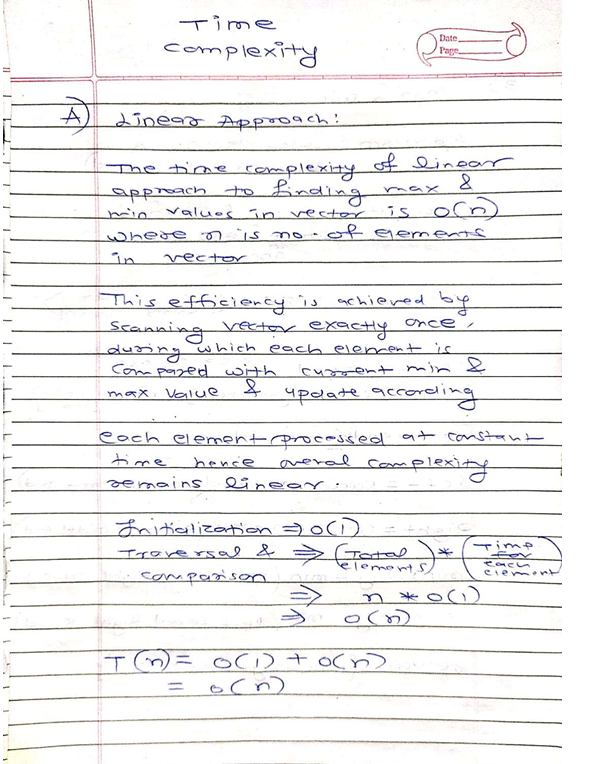 Time
complexity
Date
Page
A) Linear Approach:
The time complexity of linear
approach to finding max &
min values in vector is O(n)
where n is no. of elements
in vector
This efficiency is achieved by
scanning vector exactly once,
during which each element is
compared with current min &
max value & update according
each element processed at constant
time hence overal complexity
remains linear.
Initialization ⇒ O(1)
Traversal & comparison ⇒ (Total elements) * (Time for each element)
⇒ n * O(1)
⇒ O(n)
T(n) = O(1) + O(n)
= O(n)